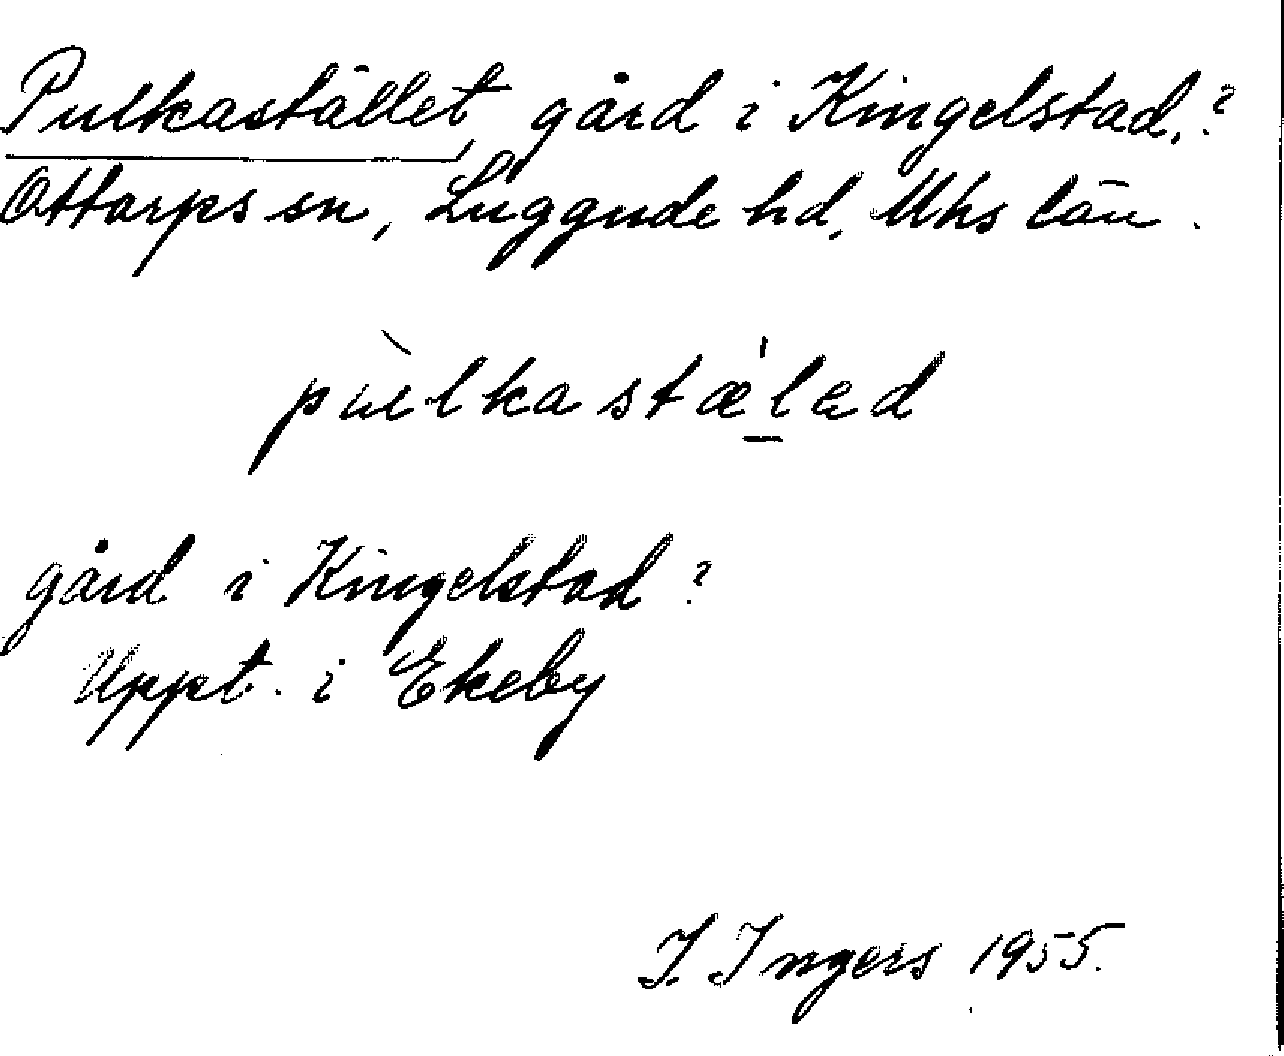 Pulkastället, gård i Kingelstad,?
Ottarps sn, Luggude hd, Mhs län.
pùlkastæ̍lad
gård i Kingelstad?
Uppt. i Ekeby
I. Ingers 1955.